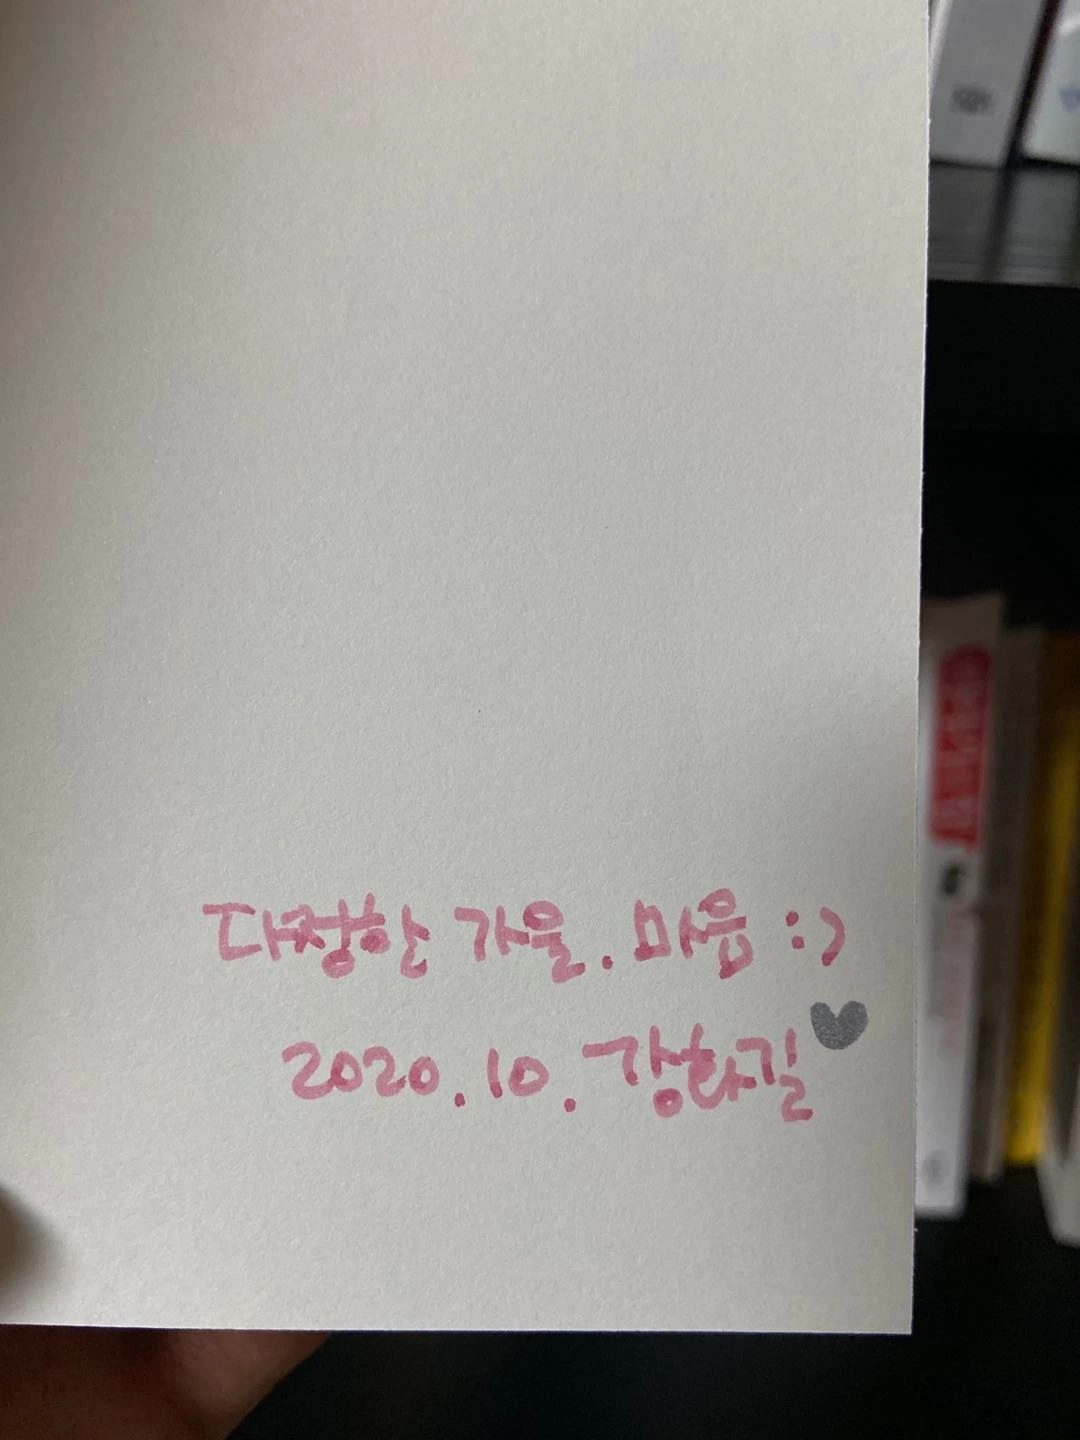 다정한 가을. 마음 :)
2020. 10. 강화길